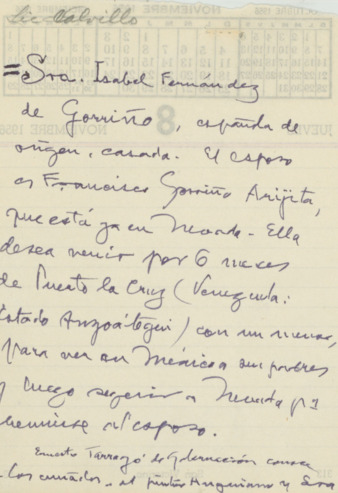 Lic Calvillo
NOVIEMBRE
=Sra. Isabel Fernández
de Gorriño, española de
origen, casada. El esposo
es Francisco Gorriño Arijita,
que está ya en Nevada - Ella
desea venir por 6 meses
de Puerto la Cruz (Venezuela:
Estado Anzoátegui) con un menor,
para ver en México a sus padres
y luego seguir a Nevada pª
reunirse al esposo.
Ernesto Tarragó de Gobernación conoce
los cuñados, el pintor Anguiano y Sra